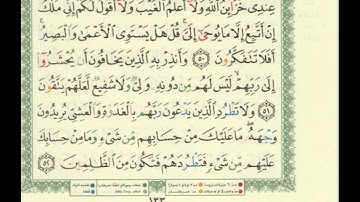 عِندِى خَزَآئِنُ ٱللَّهِ وَلَآ أَعْلَمُ ٱلْغَيْبَ وَلَآ أَقُولُ لَكُمْ إِنِّى مَلَكٌ
إِنْ أَتَّبِعُ إِلَّا مَا يُوحَىٰٓ إِلَىَّ قُلْ هَلْ يَسْتَوِى ٱلْأَعْمَىٰ وَٱلْبَصِيرُ
أَفَلَا تَتَفَكَّرُونَ ٥٠ وَأَنذِرْ بِهِ ٱلَّذِينَ يَخَافُونَ أَن يُحْشَرُوٓا۟
إِلَىٰ رَبِّهِمْ لَيْسَ لَهُم مِّن دُونِهِۦ وَلِىٌّ وَلَا شَفِيعٌ لَّعَلَّهُمْ يَتَّقُونَ
٥١ وَلَا تَطْرُدِ ٱلَّذِينَ يَدْعُونَ رَبَّهُم بِٱلْغَدَوٰةِ وَٱلْعَشِىِّ يُرِيدُونَ
وَجْهَهُۥ مَا عَلَيْكَ مِنْ حِسَابِهِم مِّن شَىْءٍ وَمَا مِنْ حِسَابِكَ
عَلَيْهِم مِّن شَىْءٍ فَتَطْرُدَهُمْ فَتَكُونَ مِنَ ٱلظَّٰلِمِينَ ٥٢
١٣٣